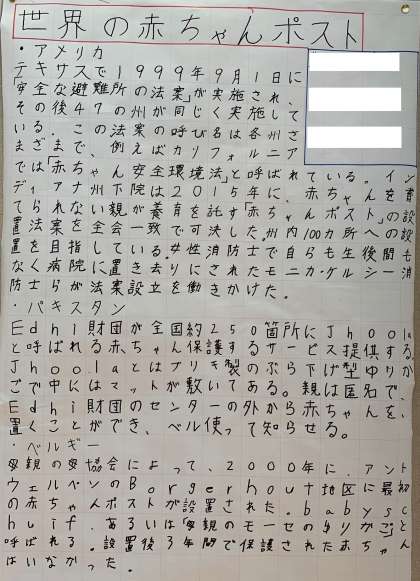 世界の赤ちゃんポスト
・アメリカ
テキサスで1999年9月1日に
「安全な避難所の法案」が実施され、
その後47の州が同じく実施して
いる。この法案の呼び名は各州さ
まざまで、例えばカリフォルニア
では「赤ちゃん安全環境法」と呼ばれている。イン
ディアナ州下院は2015年に、赤ちゃんを育
てられない親が養育を託す「赤ちゃんポスト」の設
置法案を全会一致で可決した。州内100カ所への設
置を目指している。女性消防士で自らも生後間も
なく病院に置き去りにされたモニカ・ケルシー消
防士らが法案設立を働きかけた。
・パキスタン
Edhi財団が全国約250箇所にJhoola
と呼ばれる赤ちゃん保護するサービス提供する。
Jhoolaとはブリキ製のぶら下げ型ゆりか
ごで中にはマットが敷いてある。親は匿名で、
Edhi財団のセンターの外から赤ちゃんを、
置くことができ、ベル使って知らせる。
ベルギー
母親の母協会によって、2000年に、アント
ウェルペンのBorgerhout地区に最初
の赤ちゃんポストが設置された。babysc
huif、あるいは母親のモーセのゆりかごと
呼ばれる。設置後3年間で保護されたあちゃん
はいなかった。